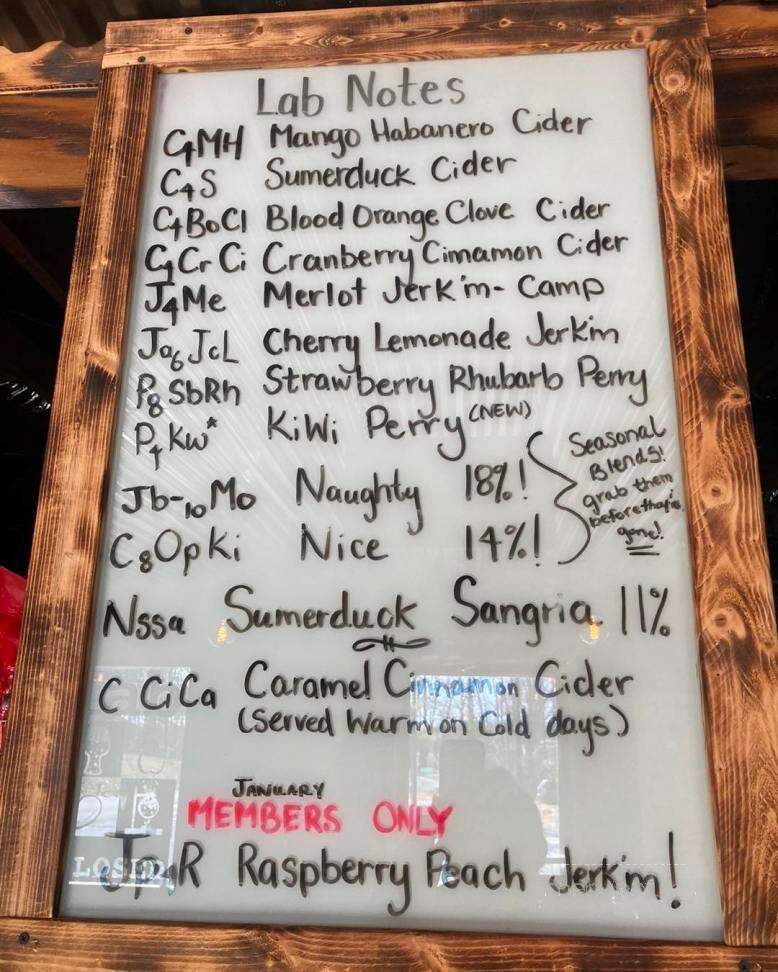 Lab Notes
C4MH Mango Habanero Cider
C4S Sumerduck Cider
C4BoCl Blood Orange Clove Cider
C4CrCi Cranberry Cimamon Cider
J4Me Merlot Jerk'm- Camp
Ja6JcL Cherry Lemonade Jerkim
P8SbRh Strawberry Rhubarb Perry
P4Kw* KiWi Perry (NEW)
Jb-10Mo Naughty 18%!
C8OpKi Nice 14%!
Seasonal
Blends!
grab them
before they're
gone!
Nssa Sumerduck Sangria 11%
C CiCa Caramel Cinnamon Cider
(Served Warm on Cold days)
JANUARY
MEMBERS ONLY
Jp4R Raspberry Peach Jerk'm!